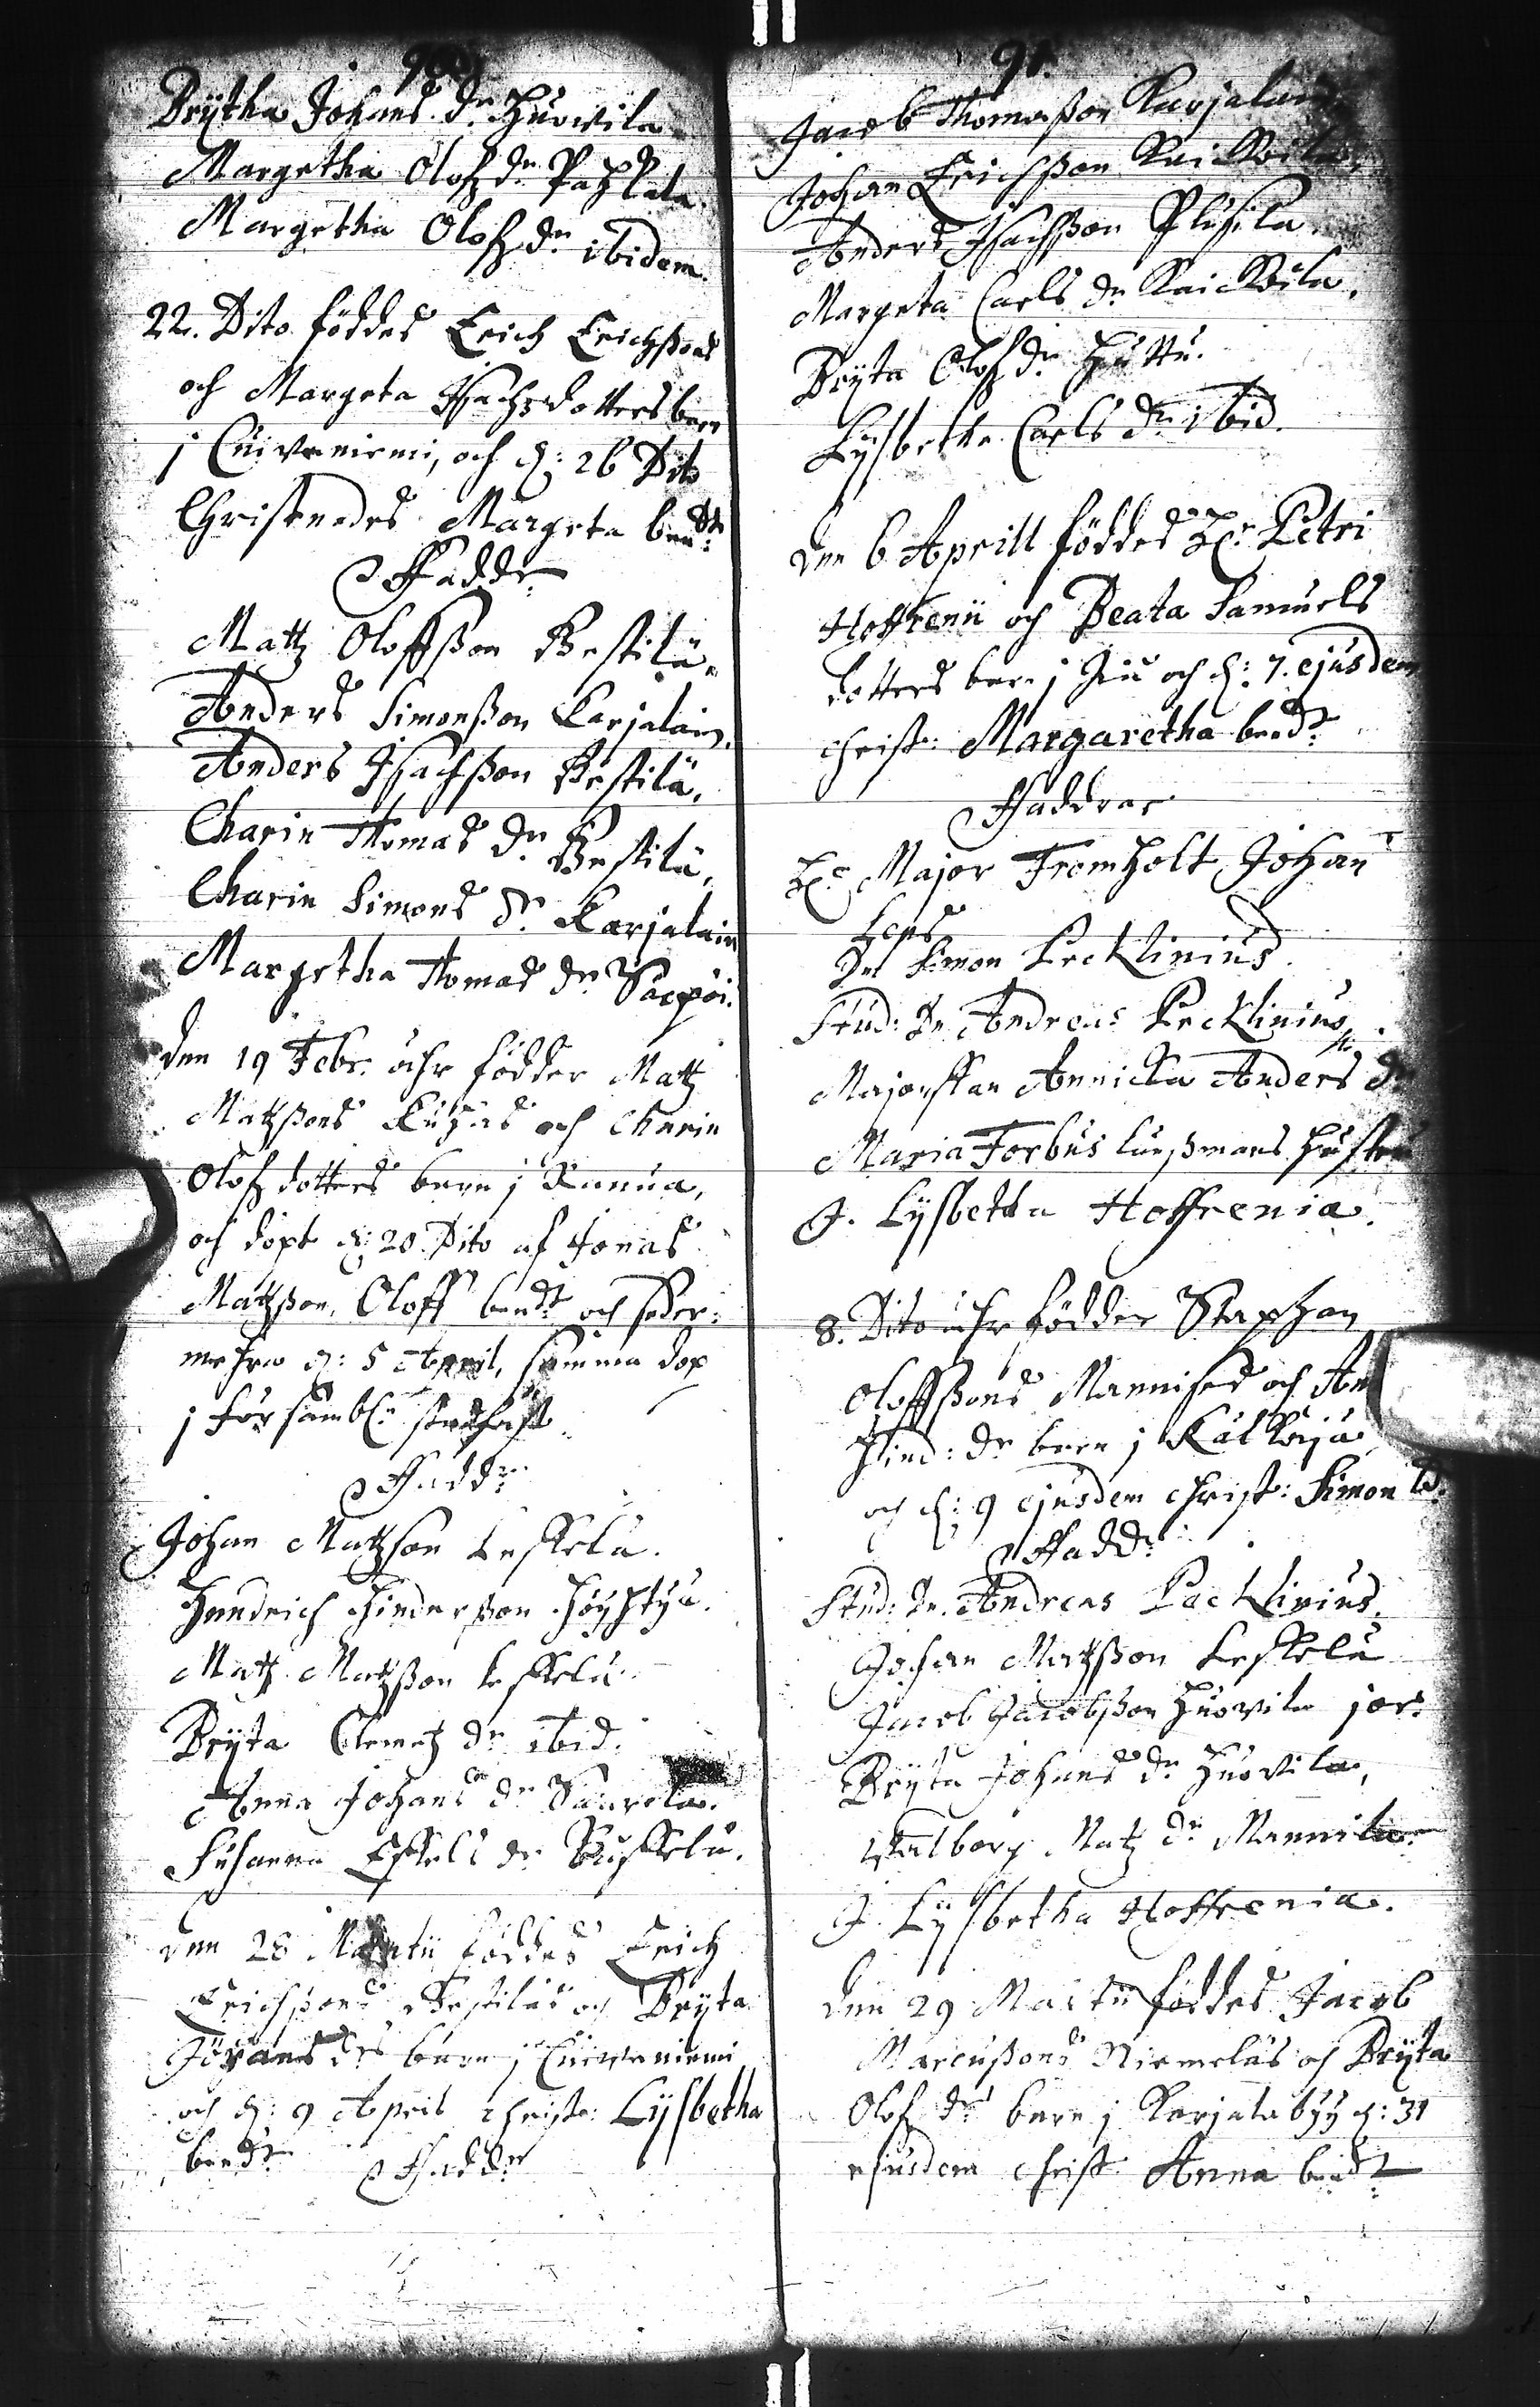 90.
Brÿtha Johans dr Huovila
Margetha Olofz dr Pahkala
Margetha Olofz dr ibidem.
22. Dito föddes Erich Erichßons
och Margeta Isachzdotters barn
j Cuivaniemi, och d: 26 Dito
Christnades Margeta bendt:
Faddr
Mattz Oloffßon Bestilä.
Anders Simonßon Karjalain.
Anders Isachßon Bestilä.
Charin Thomas dr Bestilä,
Charin Simons dr Karjalain
Margetha Thomas dr
Den 19 Febr. ähr födder Mattz
Matzßons och Charin
Olofz dotters barn j Ranua,
och döpt d: 20. Dito af Jonas
Matzßon, Oloff bendt och seder:
mehra d: 5 April, samma dop
j försambl: stadfäst.
Faddr
Johan Matzson Leskelä.
Hendrich Hinderßon Höyhtyä.
Matz Matzßon Leskelä.
Brÿta Clemetz dr ibid.
Anna Johans dr Saurela.
Susanna Eskels dr
Den 28 Martii föddes Erich
Erichßons Bestiläs och Brÿta
Jörans drs barn j Cuivaniemi
och d: 9 April christ: Lÿsbetha
bendt Faddr
91.
Jacob Thomaßon Karjalain
Johan Erichßon Kaickoila,
Anders Isachßon
Margeta Carls dr Kaickoila,
Brÿta Olofz dr Huttu.
Lÿsbetha Carls dr ibid.
Den 6 Aprill föddes Hr Petri
Hoffrenii och Beata Samuels
dotters barn j Iju och d: 7. ejusdem
christ: Margaretha bendt
Faddrar
Hr Major Fromholt Johan
Leps
Dn Simon Pecklinius.
Stud: Dn Andreas Pecklinius
Majorskan Annicka Anders dr
Maria Forbus länßmans hustru
J. Lÿsbetha Hoffrenia.
8. Dito ähr födder Staphan
Oloffßons Mannises och An
Hind: dr barn j
och d: 9 ejusdem christ: Simon bd.
Faddr
Stud: Dn. Andreas Pecklinius.
Johan Matzßon Leskelä
Jacob Jacobßon Huovila jor:
Brÿta Johans dr Huovila,
Walborg Matz dr Mannila.
J. Lÿsbetha Hoffrenia.
Den 29 Martii föddes Jacob
Marcußons Niemeläs och Brÿta
Olofz drs barn j Karjala byÿ d: 31
ejusdem christ: Anna bendt